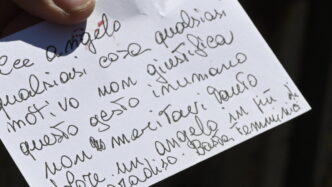 Cee angelo
qualsiasi cosa qualsiasi
motivo non giustifica
questo gesto inumano
non meritavi tanto
dolore un angelo in più in
paradiso. Basta femminici